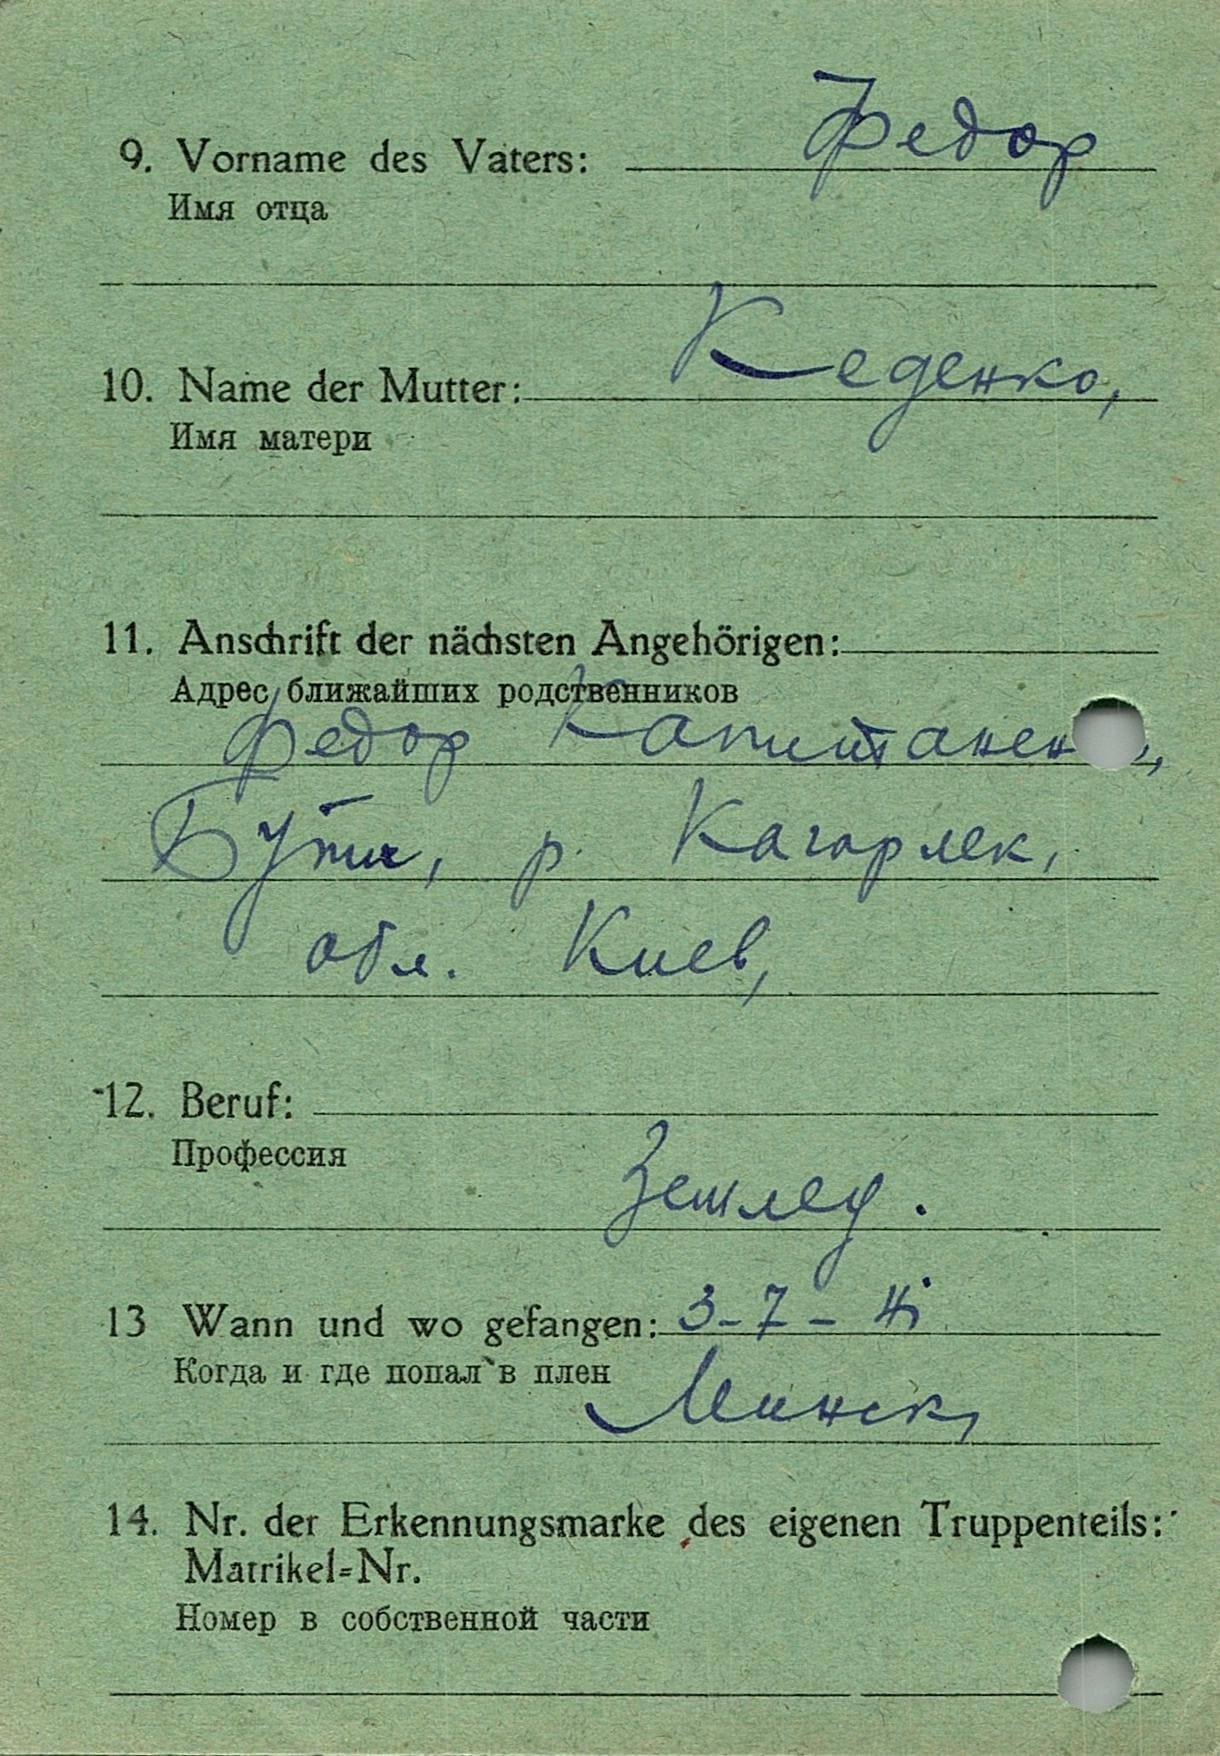 9. Vorname des Vaters: Федор
Имя отца
10. Name der Mutter: Кеденко,
Имя матери
11. Anschrift der nächsten Angehörigen:
Адрес ближайших родственников
Федор
Бути, р. Кагарлек,
обл. Киев,
12. Beruf:
Профессия
Землед.
13 Wann und wo gefangen: 3-7-41
Когда и где попал в плен
Минск,
14. Nr. der Erkennungsmarke des eigenen Truppenteils:
Matrikel=Nr.
Номер в собственной части